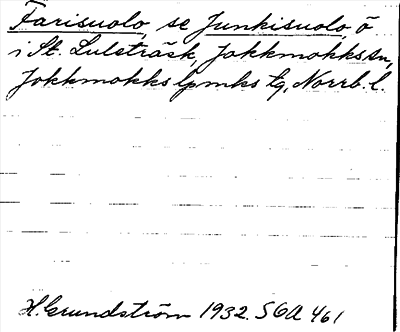 Farisuolo, se Junkisuolo, ö
i St. Luleträsk, Jokkmokks sn,
Jokkmokks lpmks tg, Norrb. l.
H. Grundström 1932. SOA 461